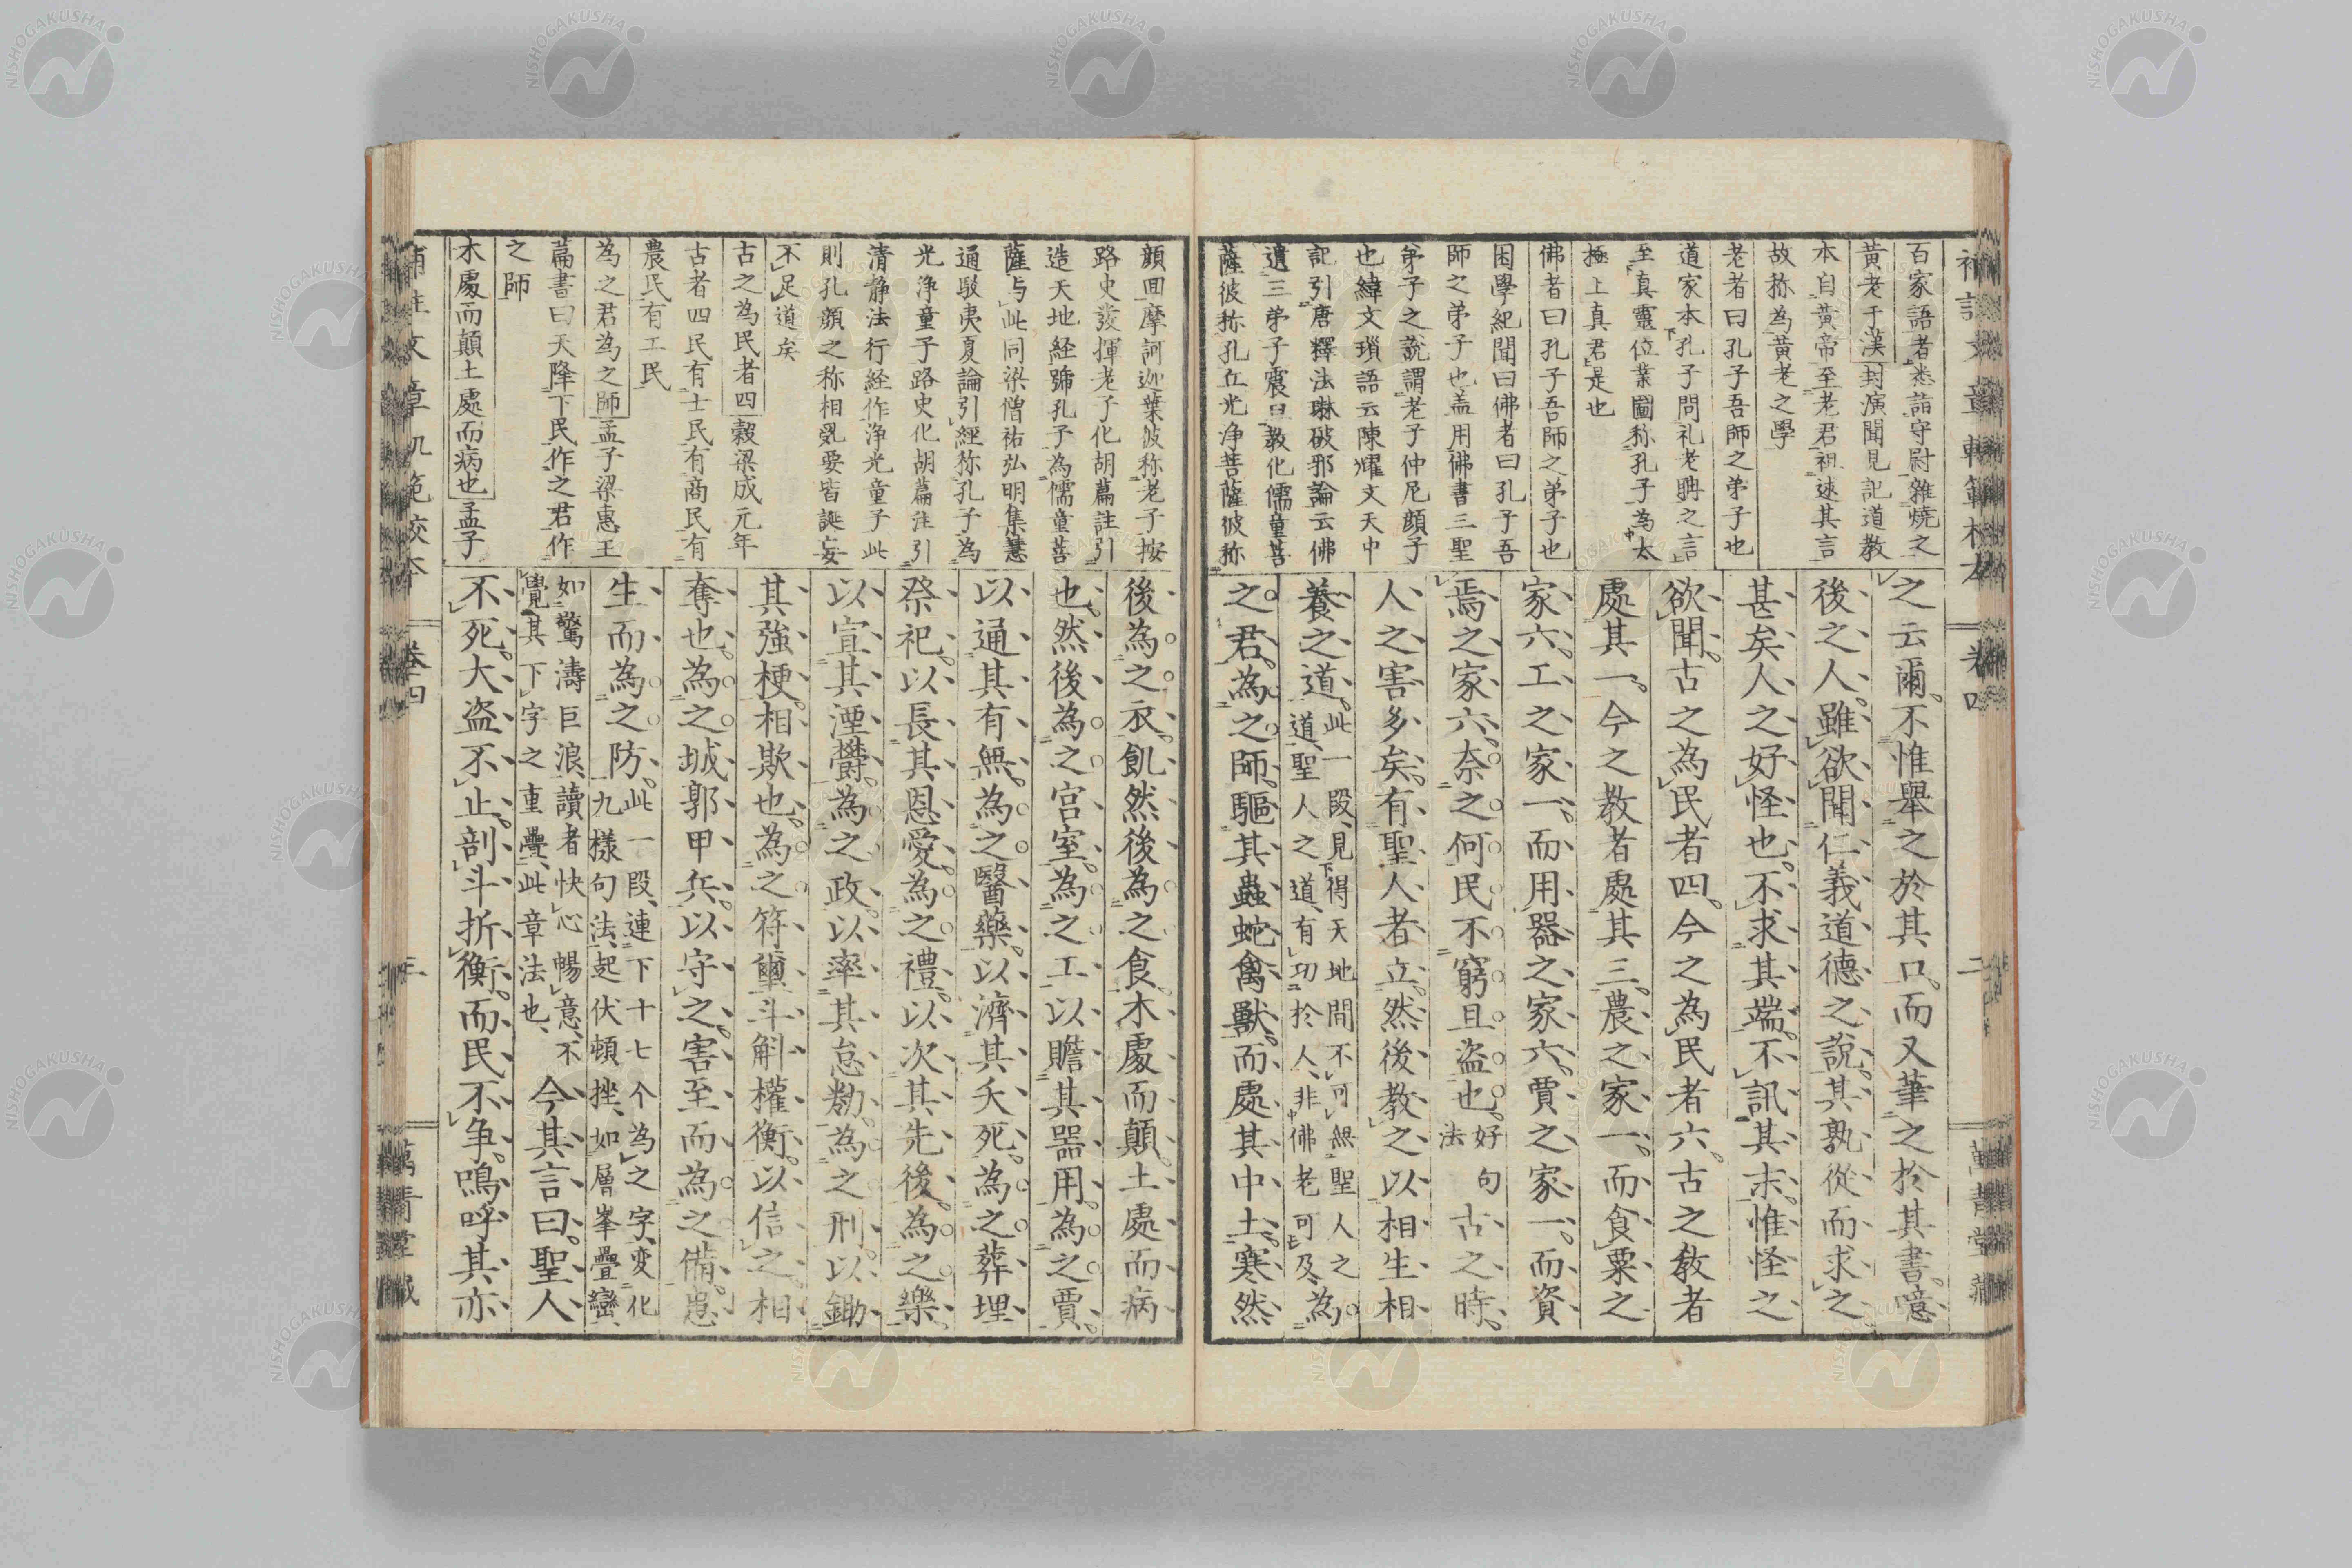 百家語者悉詣守尉雜燒之
黃老于漢封演聞見記道教
本自黃帝至老君祖述其言
故称為黃老之學
老者曰孔子吾師之弟子也
道家本孔子問礼老聃之言
至真靈位業圖称孔子為太
極上真君是也
佛者曰孔子吾師之弟子也
困學紀聞曰佛者曰孔子吾
師之弟子也盖用佛書三聖
弟子之說謂老子仲尼顔子
也緯文瑣語云陳燿文天中
記引唐釋法琳破邪論云佛
遺三弟子震旦教化儒童菩
薩彼称孔丘光浄菩薩彼称
之云爾。不惟舉之於其口。而又筆之於其書。噫
後之人。雖欲聞仁義道德之說。其孰從而求之
甚矣人之好怪也。不求其端。不訊其末。惟怪之
欲聞。古之為民者四。今之為民者六。古之教者
處其一。今之教者處其三。農之家一。而食粟之
家六。工之家一。而用器之家六。賈之家一。而資
焉之家六。奈之何民不窮且盜也。好句法 古之時。
人之害多矣。有聖人者立。然後教之以相生相
養之道。此一段、見得天地間不可無聖人之
道、聖人之道、有功於人、非佛老可及、為
之君。為之師。驅其蟲蛇禽獸。而處其中土。寒然
補註文章軌範校本 卷四 二 萬青堂藏
顔回摩訶迦葉彼称老子按
路史發揮老子化胡篇註引
造天地経號孔子為儒童菩
薩与此同梁僧祐弘明集慧
通駁夷夏論引経称孔子為
光浄童子路史化胡篇注引
清静法行経作浄光童子此
則孔顔之称相乱要皆誕妄
不足道矣
古之為民者四穀梁成元年
古者四民有士民有商民有
農民有工民
為之君為之師孟子梁惠王
篇書曰天降下民作之君作
之師
木處而顛土處而病也孟子
後為之衣。飢然後為之食。木處而顛。土處而病
也。然後為之宮室。為之工以贍其器用。為之賈。
以通其有無。為之醫藥。以濟其夭死。為之葬埋
祭祀。以長其恩愛。為之禮。以次其先後。為之樂。
以宣其湮欝。為之政。以率其怠勌。為之刑。以鋤
其強梗。相欺也。為之符璽斗斛權衡。以信之。相
奪也。為之城郭甲兵。以守之。害至而為之備。患
生而為之防。此一段、連下十七个為之字、変化
九樣句法、起伏頓挫、如層峯疊巒、
如驚濤巨浪、讀者快心暢意、不
覺其下字之重疊、此章法也、今其言曰。聖人
不死。大盗不止。剖斗折衡。而民不争。嗚呼其亦
補註文章軌範校本 卷四 萬青堂藏